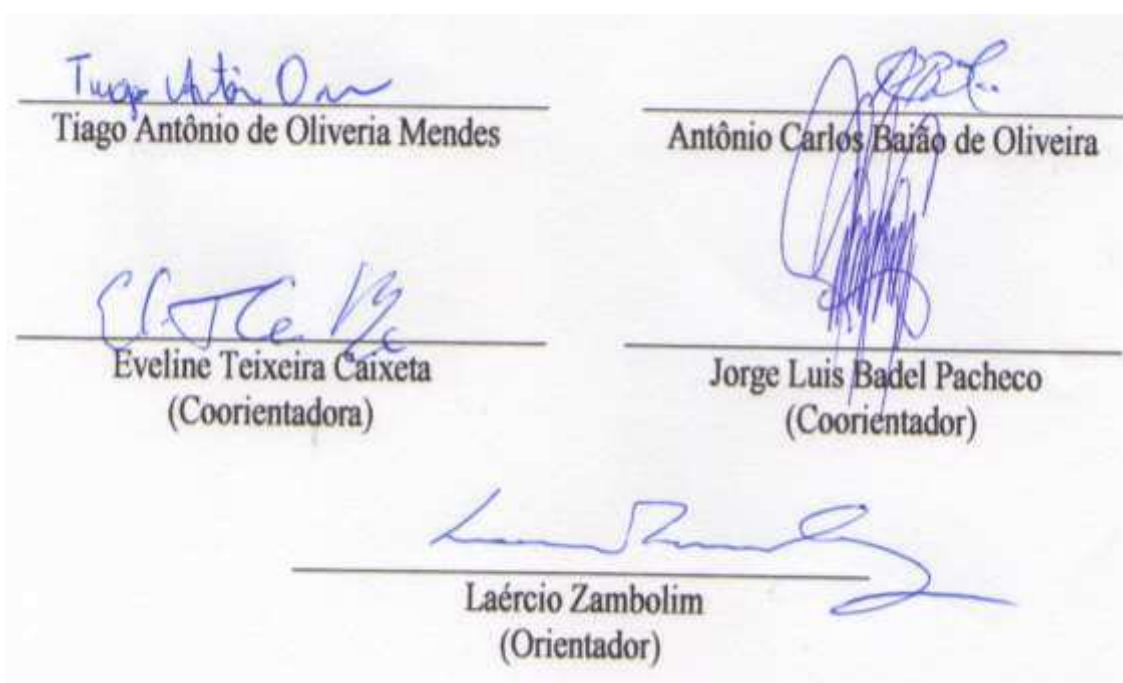 Tiago Antônio de Oliveria Mendes
Antônio Carlos Baião de Oliveira
Eveline Teixeira Caixeta
(Coorientadora)
Jorge Luis Badel Pacheco
(Coorientador)
Laércio Zambolim
(Orientador)